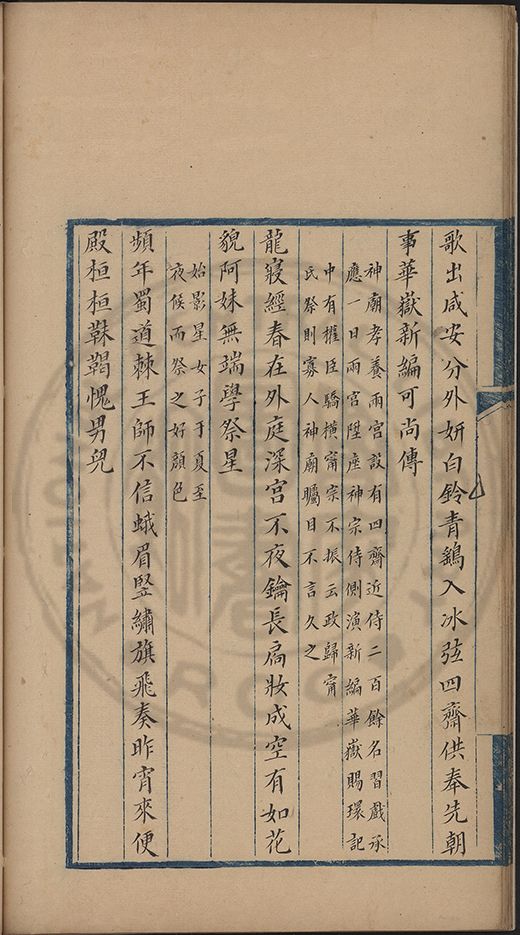 歌出咸安分外妍白鈴青鷂入冰弦四齋供奉先朝
事華嶽新編可尚傳
神廟孝養兩宮設有四齋近侍二百餘名習戲承
應一日兩宮陞座神宗侍側演新編華嶽賜環記
中有權臣驕橫甯宗不振云政歸甯
氏祭則寡人神廟矚目不言久之
龍寢經春在外庭深宮不夜鑰長扃妝成空有如花
貌阿妹無端學祭星
始影星女子于夏至
夜候而祭之好顏色
頻年蜀道棘王師不信蛾眉豎繡旗飛奏昨宵來便
殿桓桓靺鞨愧男兒